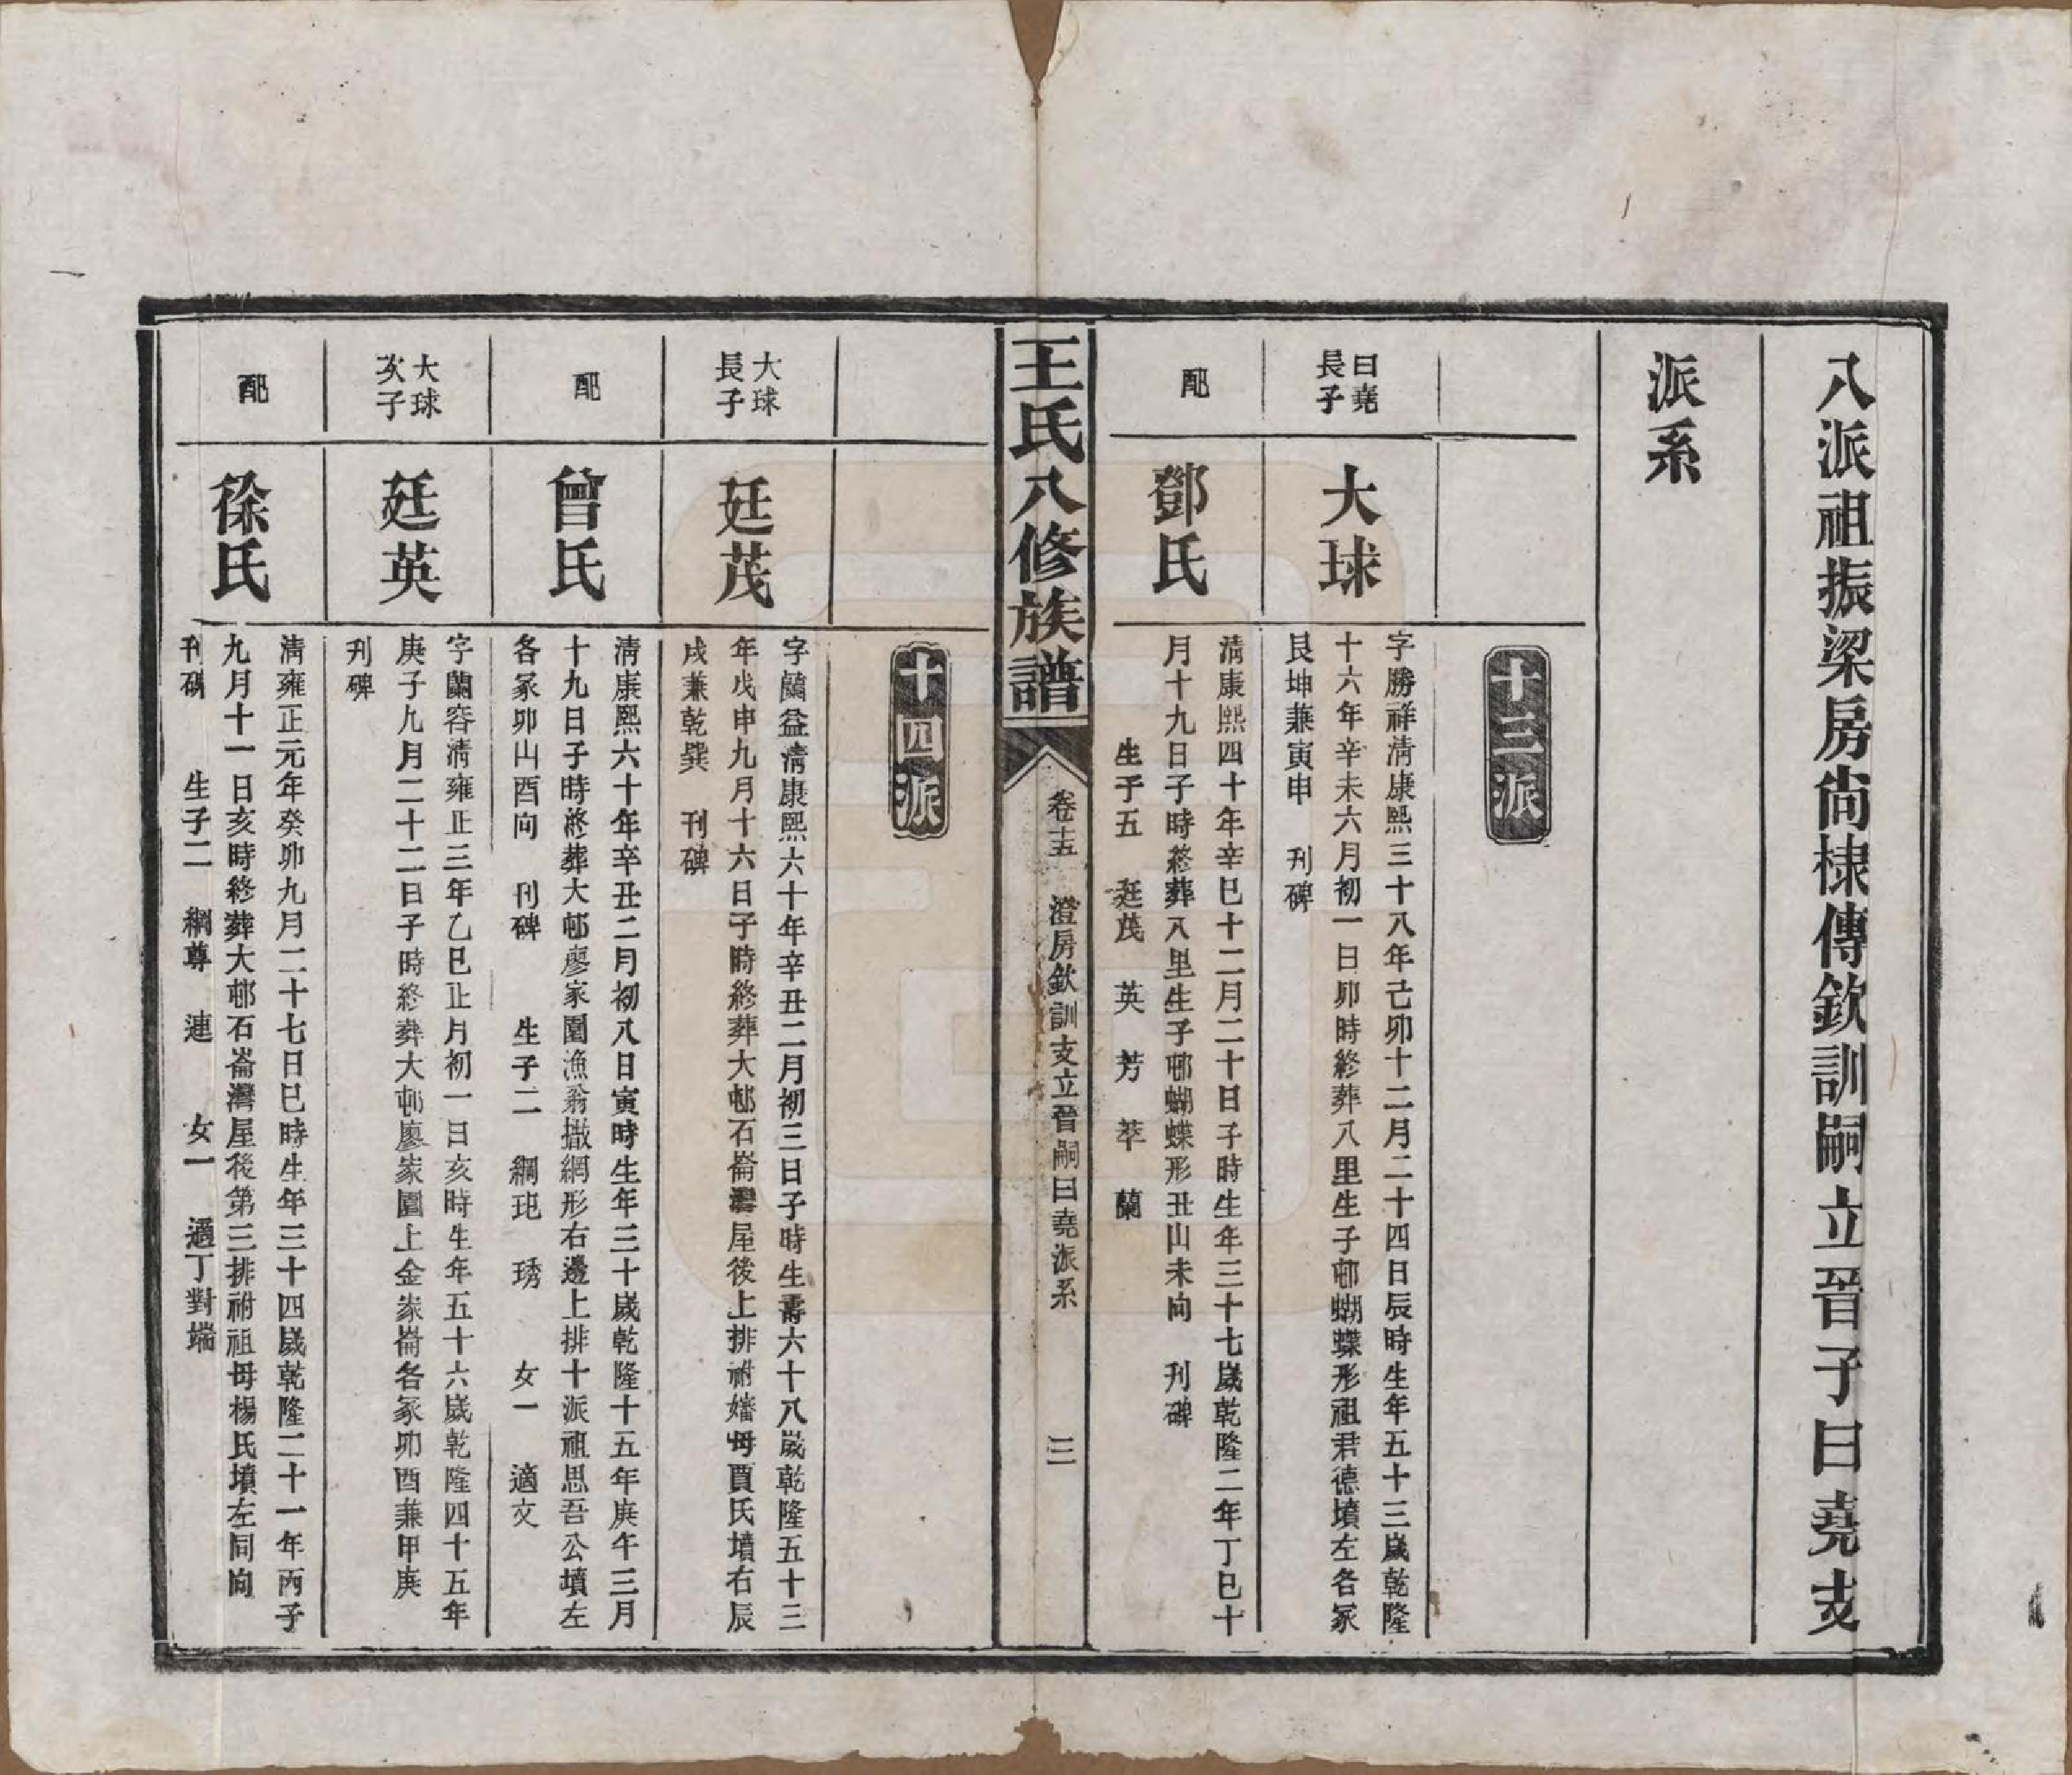 八派祖振梁房尚棣傳欽訓嗣立晉子曰堯支
派系
十三派
曰堯
長子
大球
字勝祥清康熙三十八年己卯十二月二十四日辰時生年五十三歲乾隆
十六年辛未六月初一日卯時終葬八里生子邨蝴蝶形祖君德墳左各冢
艮坤兼寅申 刊碑
配
鄧氏
清康熙四十年辛巳十二月二十日子時生年三十七歲乾隆二年丁巳十
月十九日子時終葬八里生子邨蝴蝶形丑山未向 刊碑
生子五 廷茂 英 芳 萃 蘭
王氏八修族譜
卷十五 澄房欽訓支立晉嗣曰堯派系
三
十四派
大球
長子
廷茂
字蘭益清康熙六十年辛丑二月初三日子時生壽六十八歲乾隆五十三
年戊申九月十六日子時終葬大邨石崙灣屋後上排祔嬸母賈氏墳右辰
戌兼乾巽 刊碑
配
曾氏
清康熙六十年辛丑二月初八日寅時生年三十歲乾隆十五年庚午三月
十九日子時終葬大邨廖家園漁翁撒網形右邊上排十派祖思吾公墳左
各冢卯山酉向 刊碑 生子二 綱玘 琇 女一 適文
大球
次子
廷英
字蘭容清雍正三年乙巳正月初一日亥時生年五十六歲乾隆四十五年
庚子九月二十二日子時終葬大邨廖家園上金家崙各冢卯酉兼甲庚
刊碑
配
徐氏
清雍正元年癸卯九月二十七日巳時生年三十四歲乾隆二十一年丙子
九月十一日亥時終葬大邨石崙灣屋後第三排祔祖母楊氏墳左同向
刊碑 生子二 綱尊 連 女一 適丁對端